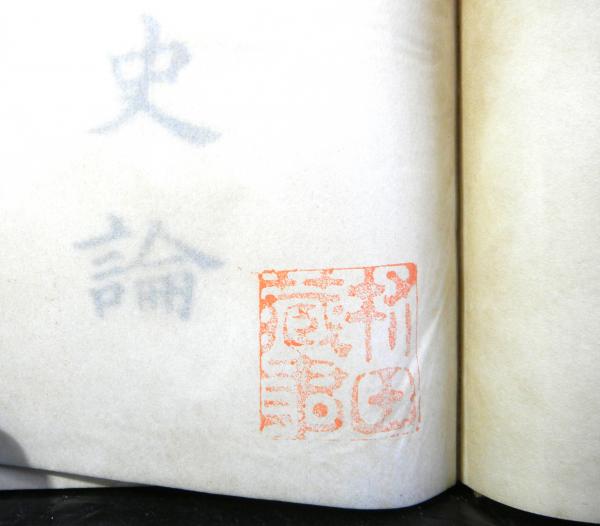 史論
田
藏書